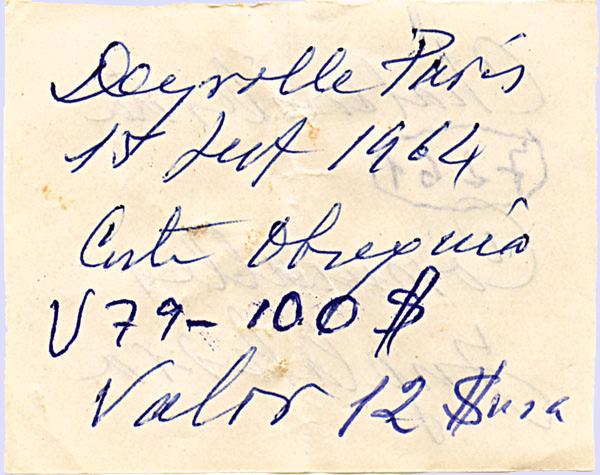 Deyrolle Paris
15 Sept 1964
Coste Obsequio
V79-100$
Valor 12 $usa